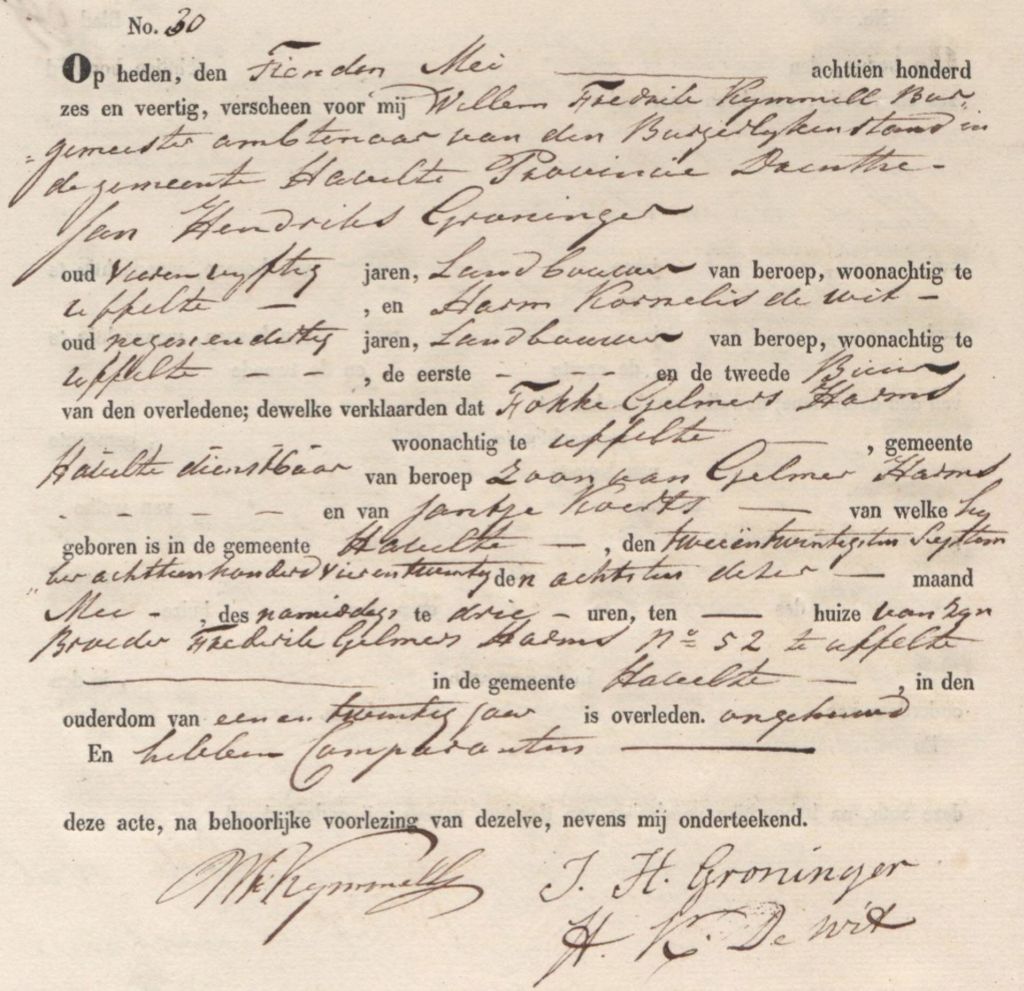 No. 30
Op heden, den Tienden Mei achttien honderd
zes en veertig, verscheen voor mij Willem Frederik Kymmell Bur„
„gemeester ambtenaar van den Burgerlykenstand in
de gemeente Havelte Provincie Drenthe –
Jan Hendriks Groninger
oud vierenvyftig jaren, Landbouwer van beroep, woonachtig te
uffelte – , en Harm Kornelis de wit –
oud negenendertig jaren, Landbouwer van beroep, woonachtig te
uffelte – – , de eerste – – en de tweede Buur
van den overledene; dewelke verklaarden dat Fokke Gelmers Harms
woonachtig te uffelte – , gemeente
Havelte dienstbaar van beroep Zoon van Gelmer Harms
– – – – en van Jantje Koerts – van welke hy
geboren is in de gemeente Havelte – , den tweeëntwintigsten Septem
„ber achttienhonderd vierentwintig den achtsten dezer – maand
Mei – , des namiddags te drie – uren, ten – huize van zyn
Broeder Frederik Gelmers Harms No 52 te uffelte
in de gemeente Havelte – , in den
ouderdom van eenentwintig jaar is overleden. ongehuwd
En hebben Comparanten
deze acte, na behoorlijke voorlezing van dezelve, nevens mij onderteekend.
WFKymmell J. H. Groninger
H. K. De wit